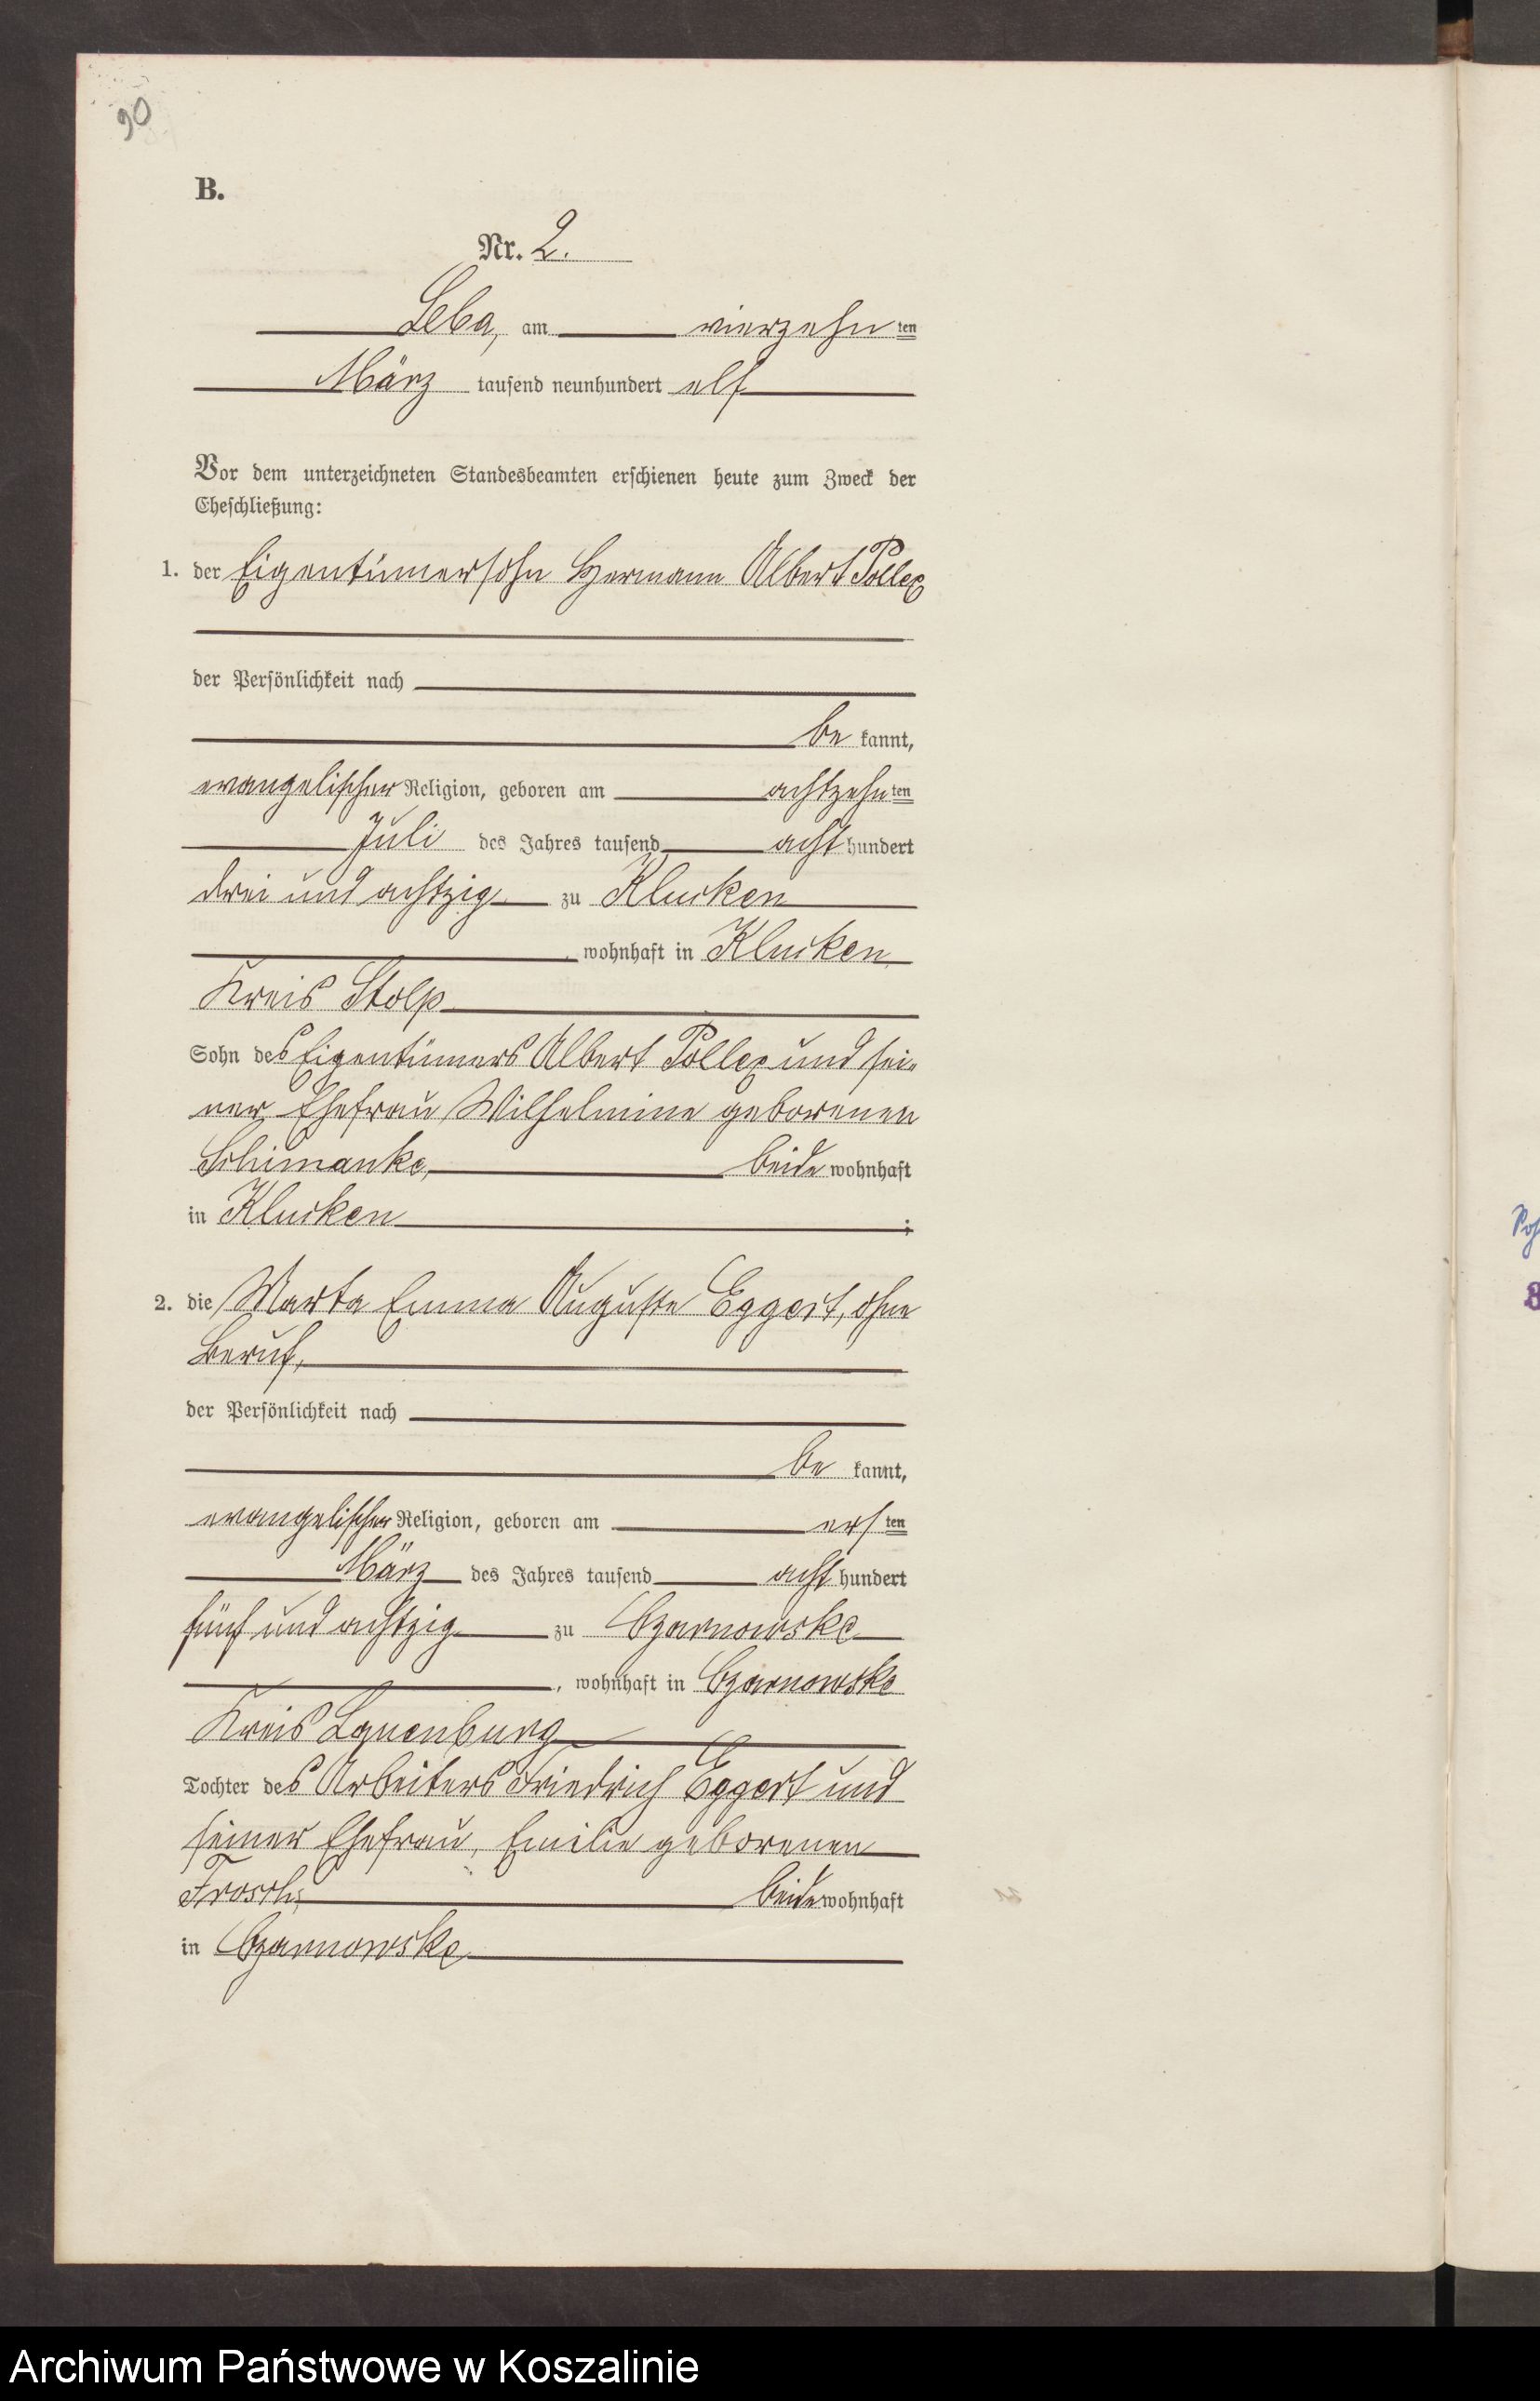 90
B.
Nr. 2.
Leba, am vierzehn ten
März tausend neunhundert elf
Vor dem unterzeichneten Standesbeamten erschienen heute zum Zweck der
Eheschließung:
1. der Eigentümersohn Hermann Albert Pollex
der Persönlichkeit nach
be kannt,
evangelischer Religion, geboren am achtzehn ten
Juli des Jahres tausend acht hundert
drei und achtzig zu Klucken
, wohnhaft in Klucken
Kreis Stolp
Sohn des Eigentümers Albert Pollex und sei-
ner Ehefrau Wilhelmine geborenen
Schimanke, beide wohnhaft
in Klucken ;
2. die Marta Emma Auguste Eggert, ohne
Beruf,
der Persönlichkeit nach
be kannt,
evangelischer Religion, geboren am ers ten
März des Jahres tausend acht hundert
fünf und achtzig zu Czarnowske
, wohnhaft in Czarnowske
Kreis Lauenburg
Tochter des Arbeiters Friedrich Eggert und
seiner Ehefrau, Emilie geborenen
Frosch, beide wohnhaft
in Czarnowske
Archiwum Państwowe w Koszalinie